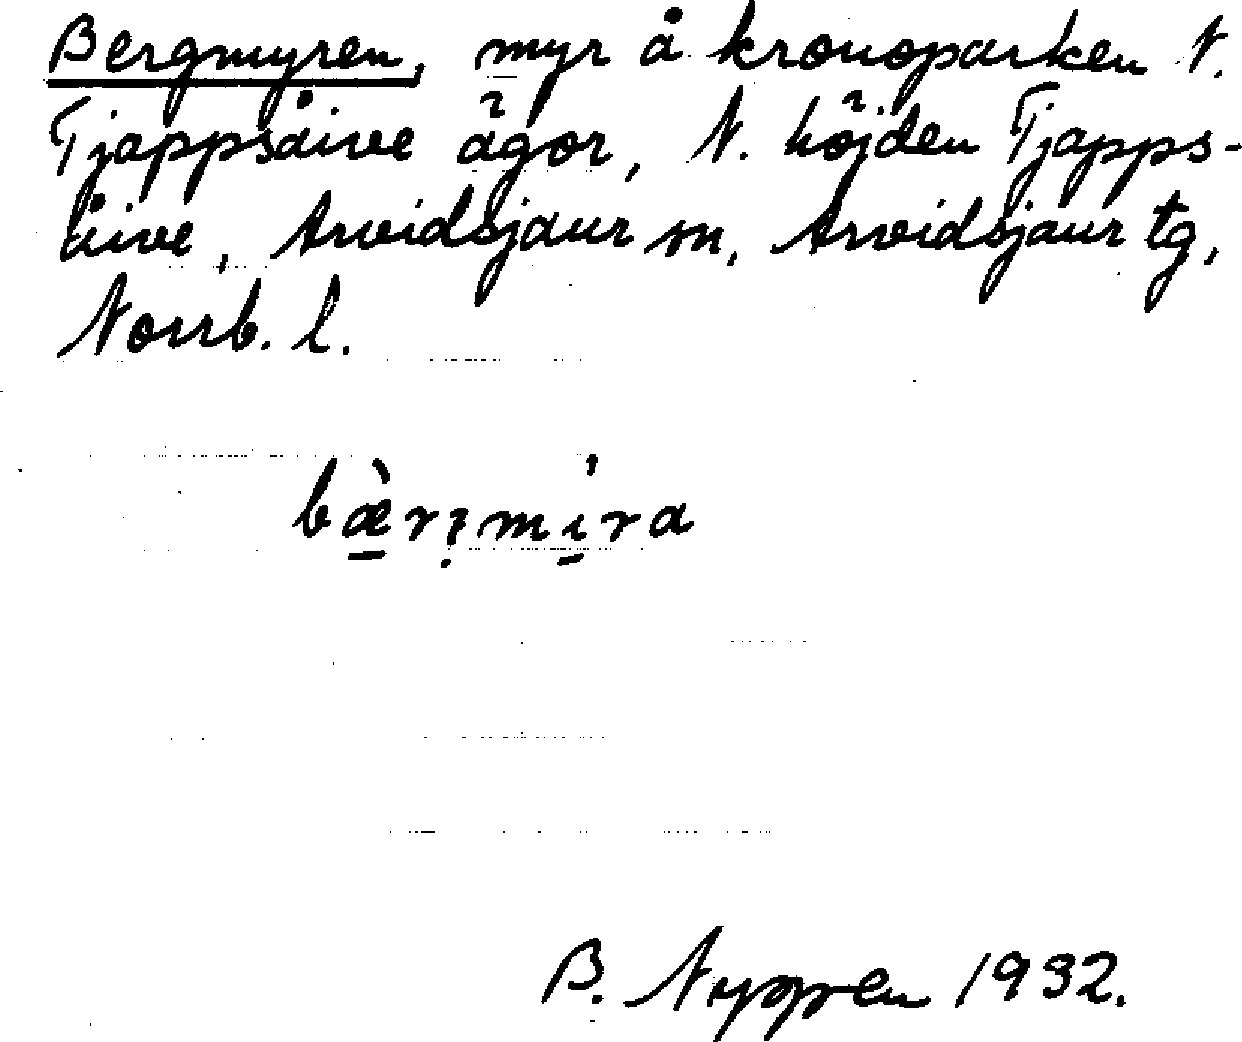 Bergmyren, myr å kronoparken N.
Tjappsåive ägor, N. höjden Tjapps-
åive, Arvidsjaur sn, Arvidsjaur tg,
Norrb. l.
B. Nygren 1932.